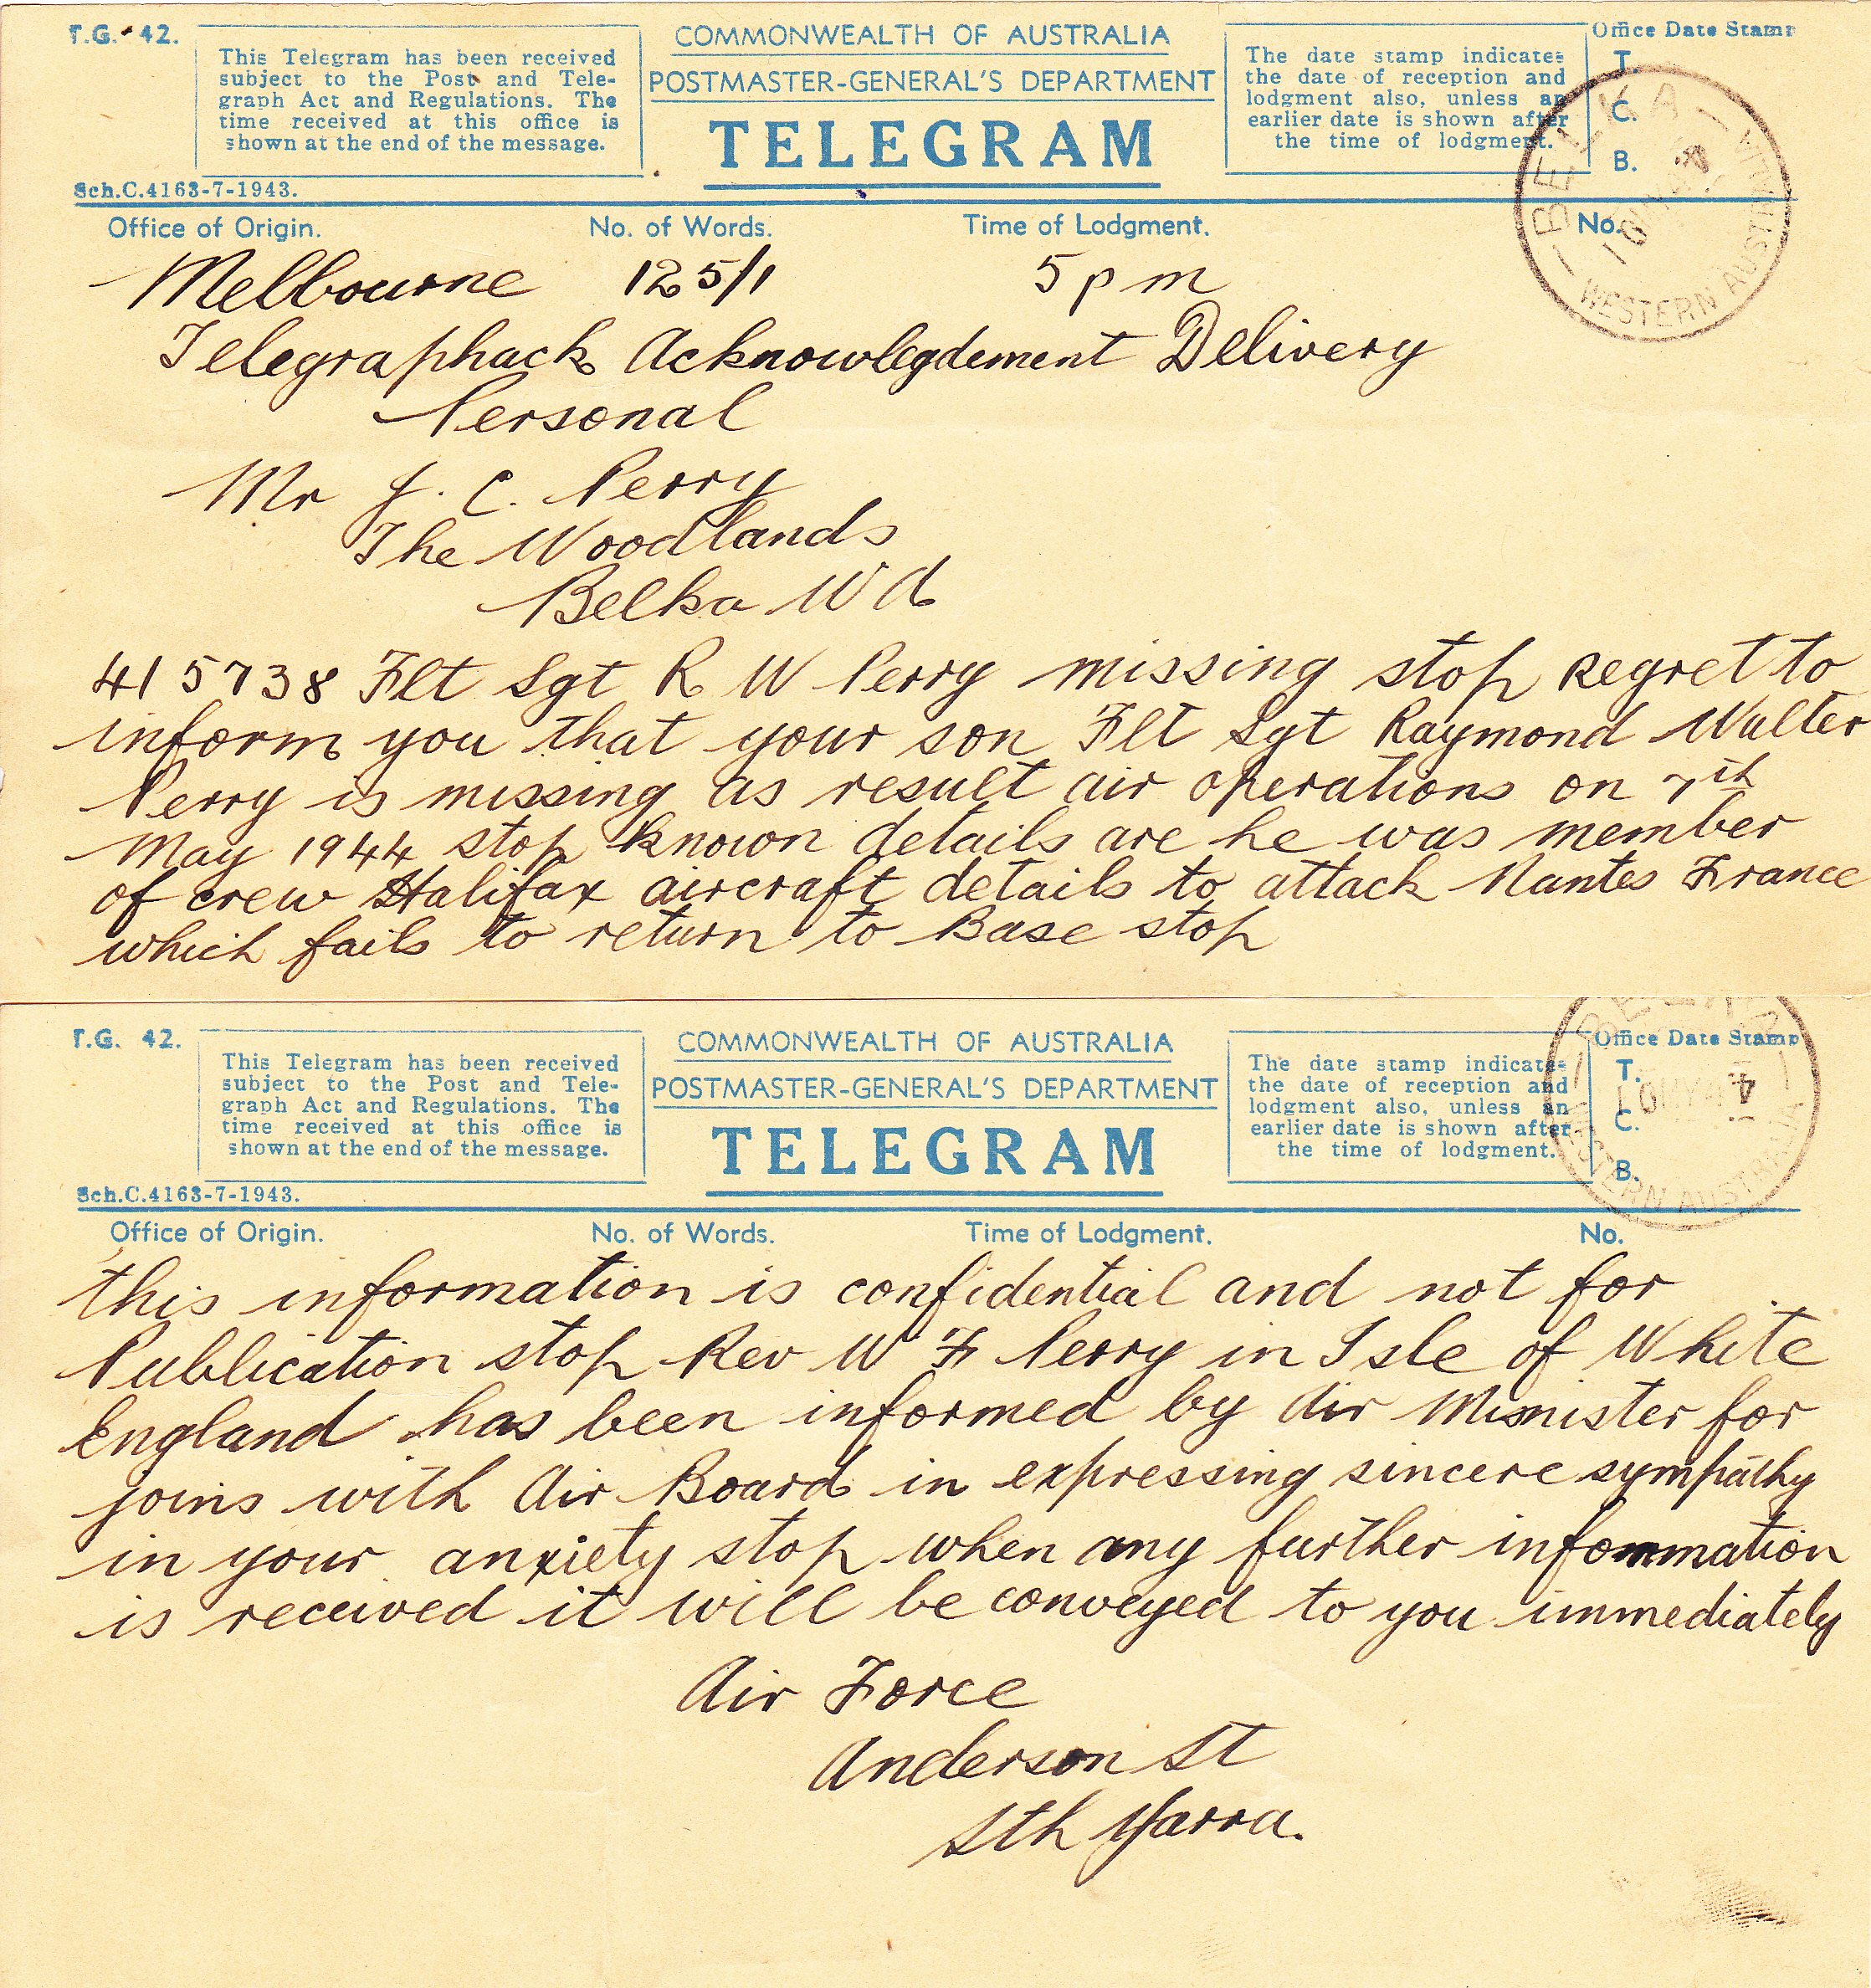 T.G. 42.
This Telegram has been received
subject to the Post and Tele-
graph Act and Regulations. The
time received at this office is
shown at the end of the message.
Sch.C.4163-7-1943.
COMMONWEALTH OF AUSTRALIA
POSTMASTER-GENERAL'S DEPARTMENT
TELEGRAM
The date stamp indicates
the date of reception and
lodgment also, unless an
earlier date is shown after
the time of lodgment.
Office Date Stamp
T.
C.
B.
BELKA
10 MY 44
WESTERN AUSTRALIA
Office of Origin. No. of Words. Time of Lodgment. No.
Melbourne 125/1 5 pm
Telegraphack Acknowlegdement Delivery
Personal
Mr J. C. Perry
The Woodlands
Belka W A
415738 Flt Sgt R W Perry missing stop regret to
inform you that your son Flt Sgt Raymond Walter
Perry is missing as result air operations on 7th
May 1944 stop known details are he was member
of crew Halifax aircraft details to attack Nantes France
which fails to return to Base stop
T.G. 42.
This Telegram has been received
subject to the Post and Tele-
graph Act and Regulations. The
time received at this office is
shown at the end of the message.
Sch.C.4163-7-1943.
COMMONWEALTH OF AUSTRALIA
POSTMASTER-GENERAL'S DEPARTMENT
TELEGRAM
The date stamp indicates
the date of reception and
lodgment also, unless an
earlier date is shown after
the time of lodgment.
Office Date Stamp
T.
C.
B.
10 MY 44
WESTERN AUSTRALIA
Office of Origin. No. of Words. Time of Lodgment. No.
this information is confidential and not for
Publication stop Rev W F Perry in Isle of White
England has been informed by Air Minister for
joins with Air Board in expressing sincere sympathy
in your anxiety stop when any further information
is received it will be conveyed to you immediately
Air Force
Anderson St
Sth Yarra.